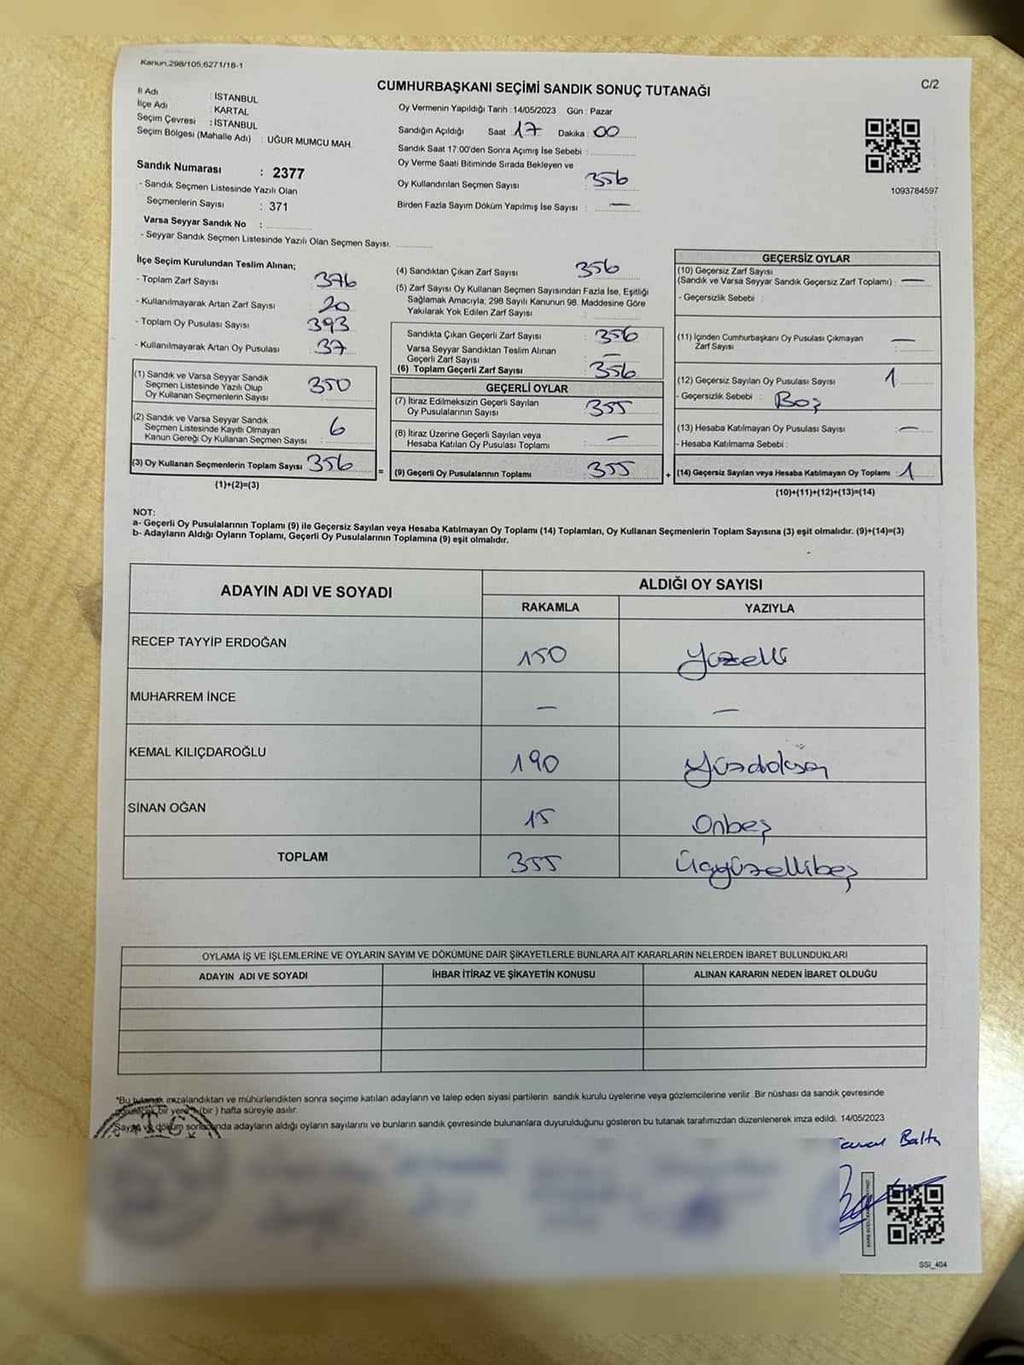 Kanun.298/105,6271/18-1
CUMHURBAŞKANI SEÇİMİ SANDIK SONUÇ TUTANAĞI
C/2
İl Adı : İSTANBUL
İlçe Adı : KARTAL
Seçim Çevresi : İSTANBUL
Seçim Bölgesi (Mahalle Adı) : UĞUR MUMCU MAH.
Sandık Numarası : 2377
- Sandık Seçmen Listesinde Yazılı Olan
Seçmenlerin Sayısı : 371
Varsa Seyyar Sandık No :
- Seyyar Sandık Seçmen Listesinde Yazılı Olan Seçmen Sayısı
Oy Vermenin Yapıldığı Tarih : 14/05/2023 Gün : Pazar
Sandığın Açıldığı Saat 17 Dakika : 00
Sandık Saat 17:00'den Sonra Açımış İse Sebebi :
Oy Verme Saati Bitiminde Sırada Bekleyen ve
Oy Kullandırılan Seçmen Sayısı 356
Birden Fazla Sayım Döküm Yapılmış İse Sayısı : —
1093784597
İlçe Seçim Kurulundan Teslim Alınan;
- Toplam Zarf Sayısı 376
- Kullanılmayarak Artan Zarf Sayısı 20
- Toplam Oy Pusulası Sayısı 393
- Kullanılmayarak Artan Oy Pusulası 37
(1) Sandık ve Varsa Seyyar Sandık
Seçmen Listesinde Yazılı Olup
Oy Kullanan Seçmenlerin Sayısı 350
(2) Sandık ve Varsa Seyyar Sandık
Seçmen Listesinde Kayıtlı Olmayan
Kanun Gereği Oy Kullanan Seçmen Sayısı 6
(3) Oy Kullanan Seçmenlerin Toplam Sayısı 356
(1)+(2)=(3)
(4) Sandıktan Çıkan Zarf Sayısı 356
(5) Zarf Sayısı Oy Kullanan Seçmen Sayısından Fazla İse, Eşitliği
Sağlamak Amacıyla; 298 Sayılı Kanunun 98. Maddesine Göre
Yakılarak Yok Edilen Zarf Sayısı
Sandıkta Çıkan Geçerli Zarf Sayısı 356
Varsa Seyyar Sandıktan Teslim Alınan
Geçerli Zarf Sayısı —
(6) Toplam Geçerli Zarf Sayısı 356
GEÇERLİ OYLAR
(7) İtiraz Edilmeksizin Geçerli Sayılan
Oy Pusulalarının Sayısı 355
(8) İtiraz Üzerine Geçerli Sayılan veya
Hesaba Katılan Oy Pusulası Toplamı —
= (9) Geçerli Oy Pusulalarının Toplamı 355 +
GEÇERSİZ OYLAR
(10) Geçersiz Zarf Sayısı
(Sandık ve Varsa Seyyar Sandık Geçersiz Zarf Toplamı) : —
- Geçersizlik Sebebi :
(11) İçinden Cumhurbaşkanı Oy Pusulası Çıkmayan
Zarf Sayısı —
(12) Geçersiz Sayılan Oy Pusulası Sayısı 1
- Geçersizlik Sebebi : Boş
(13) Hesaba Katılmayan Oy Pusulası Sayısı —
- Hesaba Katılmama Sebebi :
(14) Geçersiz Sayılan veya Hesaba Katılmayan Oy Toplamı : 1
(10)+(11)+(12)+(13)=(14)
NOT:
a- Geçerli Oy Pusulalarının Toplamı (9) ile Geçersiz Sayılan veya Hesaba Katılmayan Oy Toplamı (14) Toplamları, Oy Kullanan Seçmenlerin Toplam Sayısına (3) eşit olmalıdır. (9)+(14)=(3)
b- Adayların Aldığı Oyların Toplamı, Geçerli Oy Pusulalarının Toplamına (9) eşit olmalıdır.
ADAYIN ADI VE SOYADI
ALDIĞI OY SAYISI
RAKAMLA YAZIYLA
RECEP TAYYİP ERDOĞAN 150 Yüzelli
MUHARREM İNCE — —
KEMAL KILIÇDAROĞLU 190 Yüzdoksan
SİNAN OĞAN 15 Onbeş
TOPLAM 355 Üçyüzellibeş
OYLAMA İŞ VE İŞLEMLERİNE VE OYLARIN SAYIM VE DÖKÜMÜNE DAİR ŞİKAYETLERLE BUNLARA AİT KARARLARIN NELERDEN İBARET BULUNDUKLARI
ADAYIN ADI VE SOYADI İHBAR İTİRAZ VE ŞİKAYETİN KONUSU ALINAN KARARIN NEDEN İBARET OLDUĞU
*Bu tutanak imzalandıktan ve mühürlendikten sonra seçime katılan adayların ve talep eden siyasi partilerin sandık kurulu üyelerine veya gözlemcilerine verilir. Bir nüshası da sandık çevresinde
bir yere 1 (bir ) hafta süreyle asılır.
Sayım ve döküm sonucunda adayların aldığı oyların sayılarını ve bunların sandık çevresinde bulunanlara duyurulduğunu gösteren bu tutanak tarafımızdan düzenlenerek imza edildi. 14/05/2023
T.C.
SSI_404